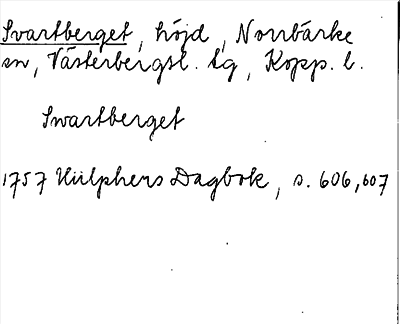 Svartberget, höjd, Norrbärke
sn, Västerbergsl. tg, Kopp. l.
Swartberget
1757 Hülphers Dagbok, s. 606, 607